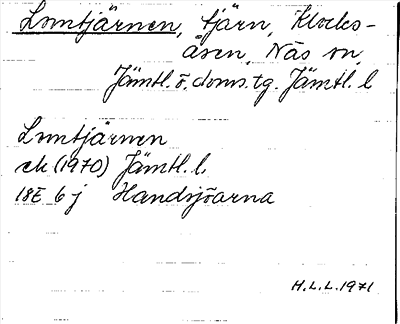 Lomtjärnen, tjärn, Klocks-
åsen, Näs sn,
Jämtl. ö. doms. tg. Jämtl. l
Lomtjärnen
ek (1970) Jämtl. l.
18E 6 j Handsjöarna
H.L.L. 1971